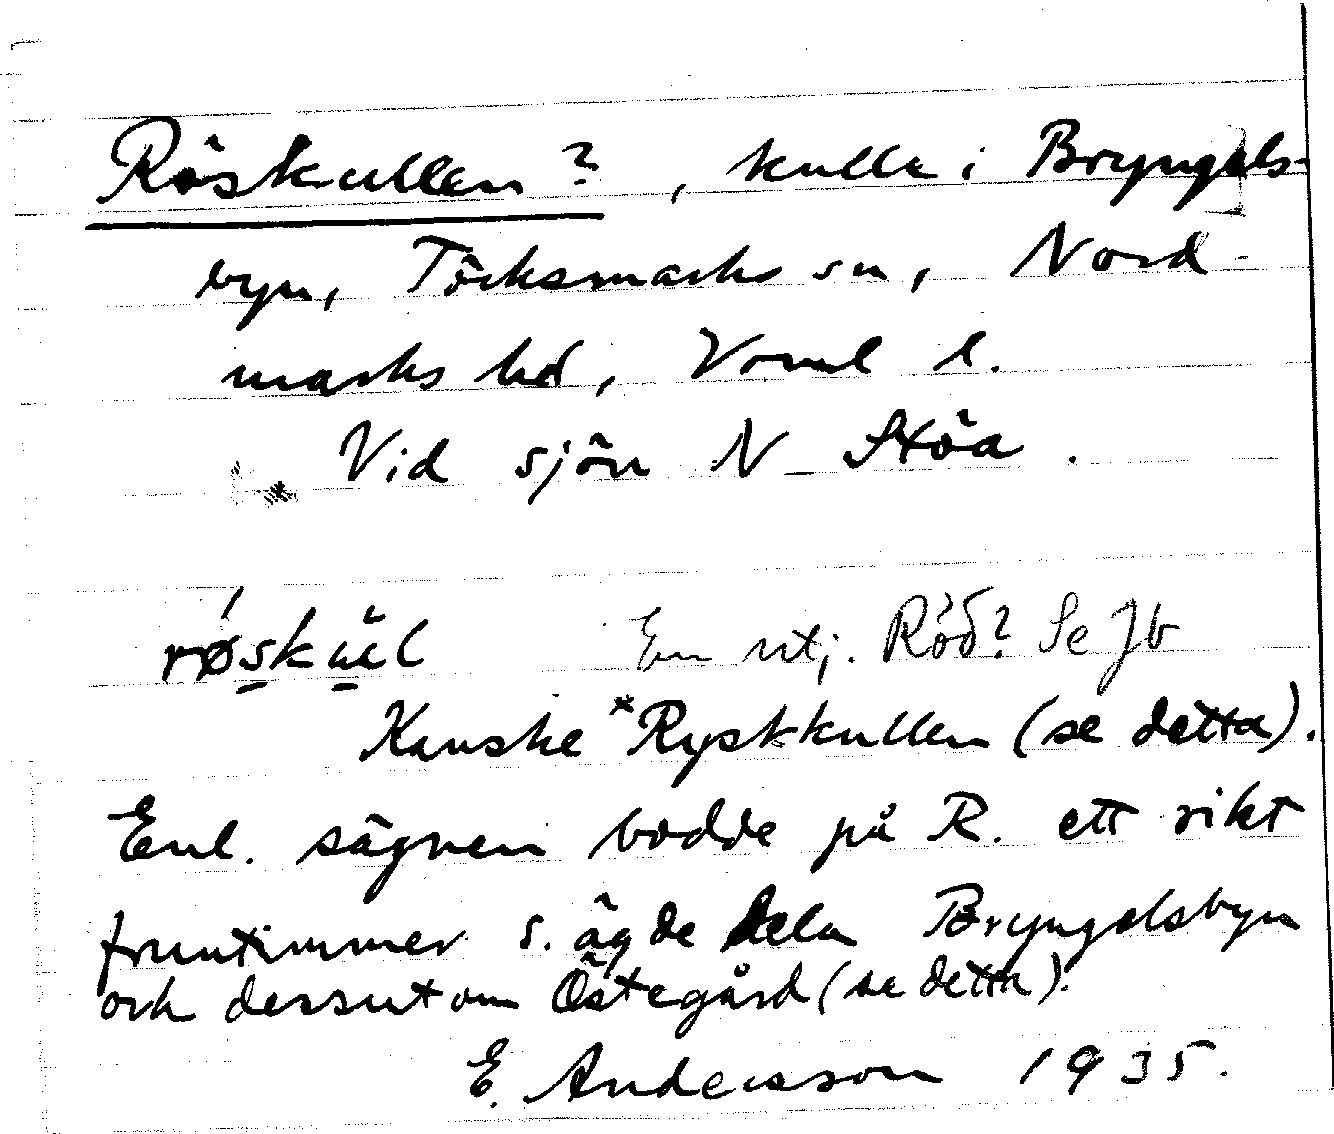 Röskullen ?, kulle i Bryngels-
byn, Töcksmarks sn, Nord-
marks hd, Vrml l.
Vid sjön N Stöa.
røskul En utj. Röd? Se Jb
Kanske *Ryskkullen (se detta).
Enl. sägnen bodde på R. ett rikt
fruntimmer s. ägde hela Bryngelsbyn
och dessutom Östegård (se detta).
E. Andersson 1935.